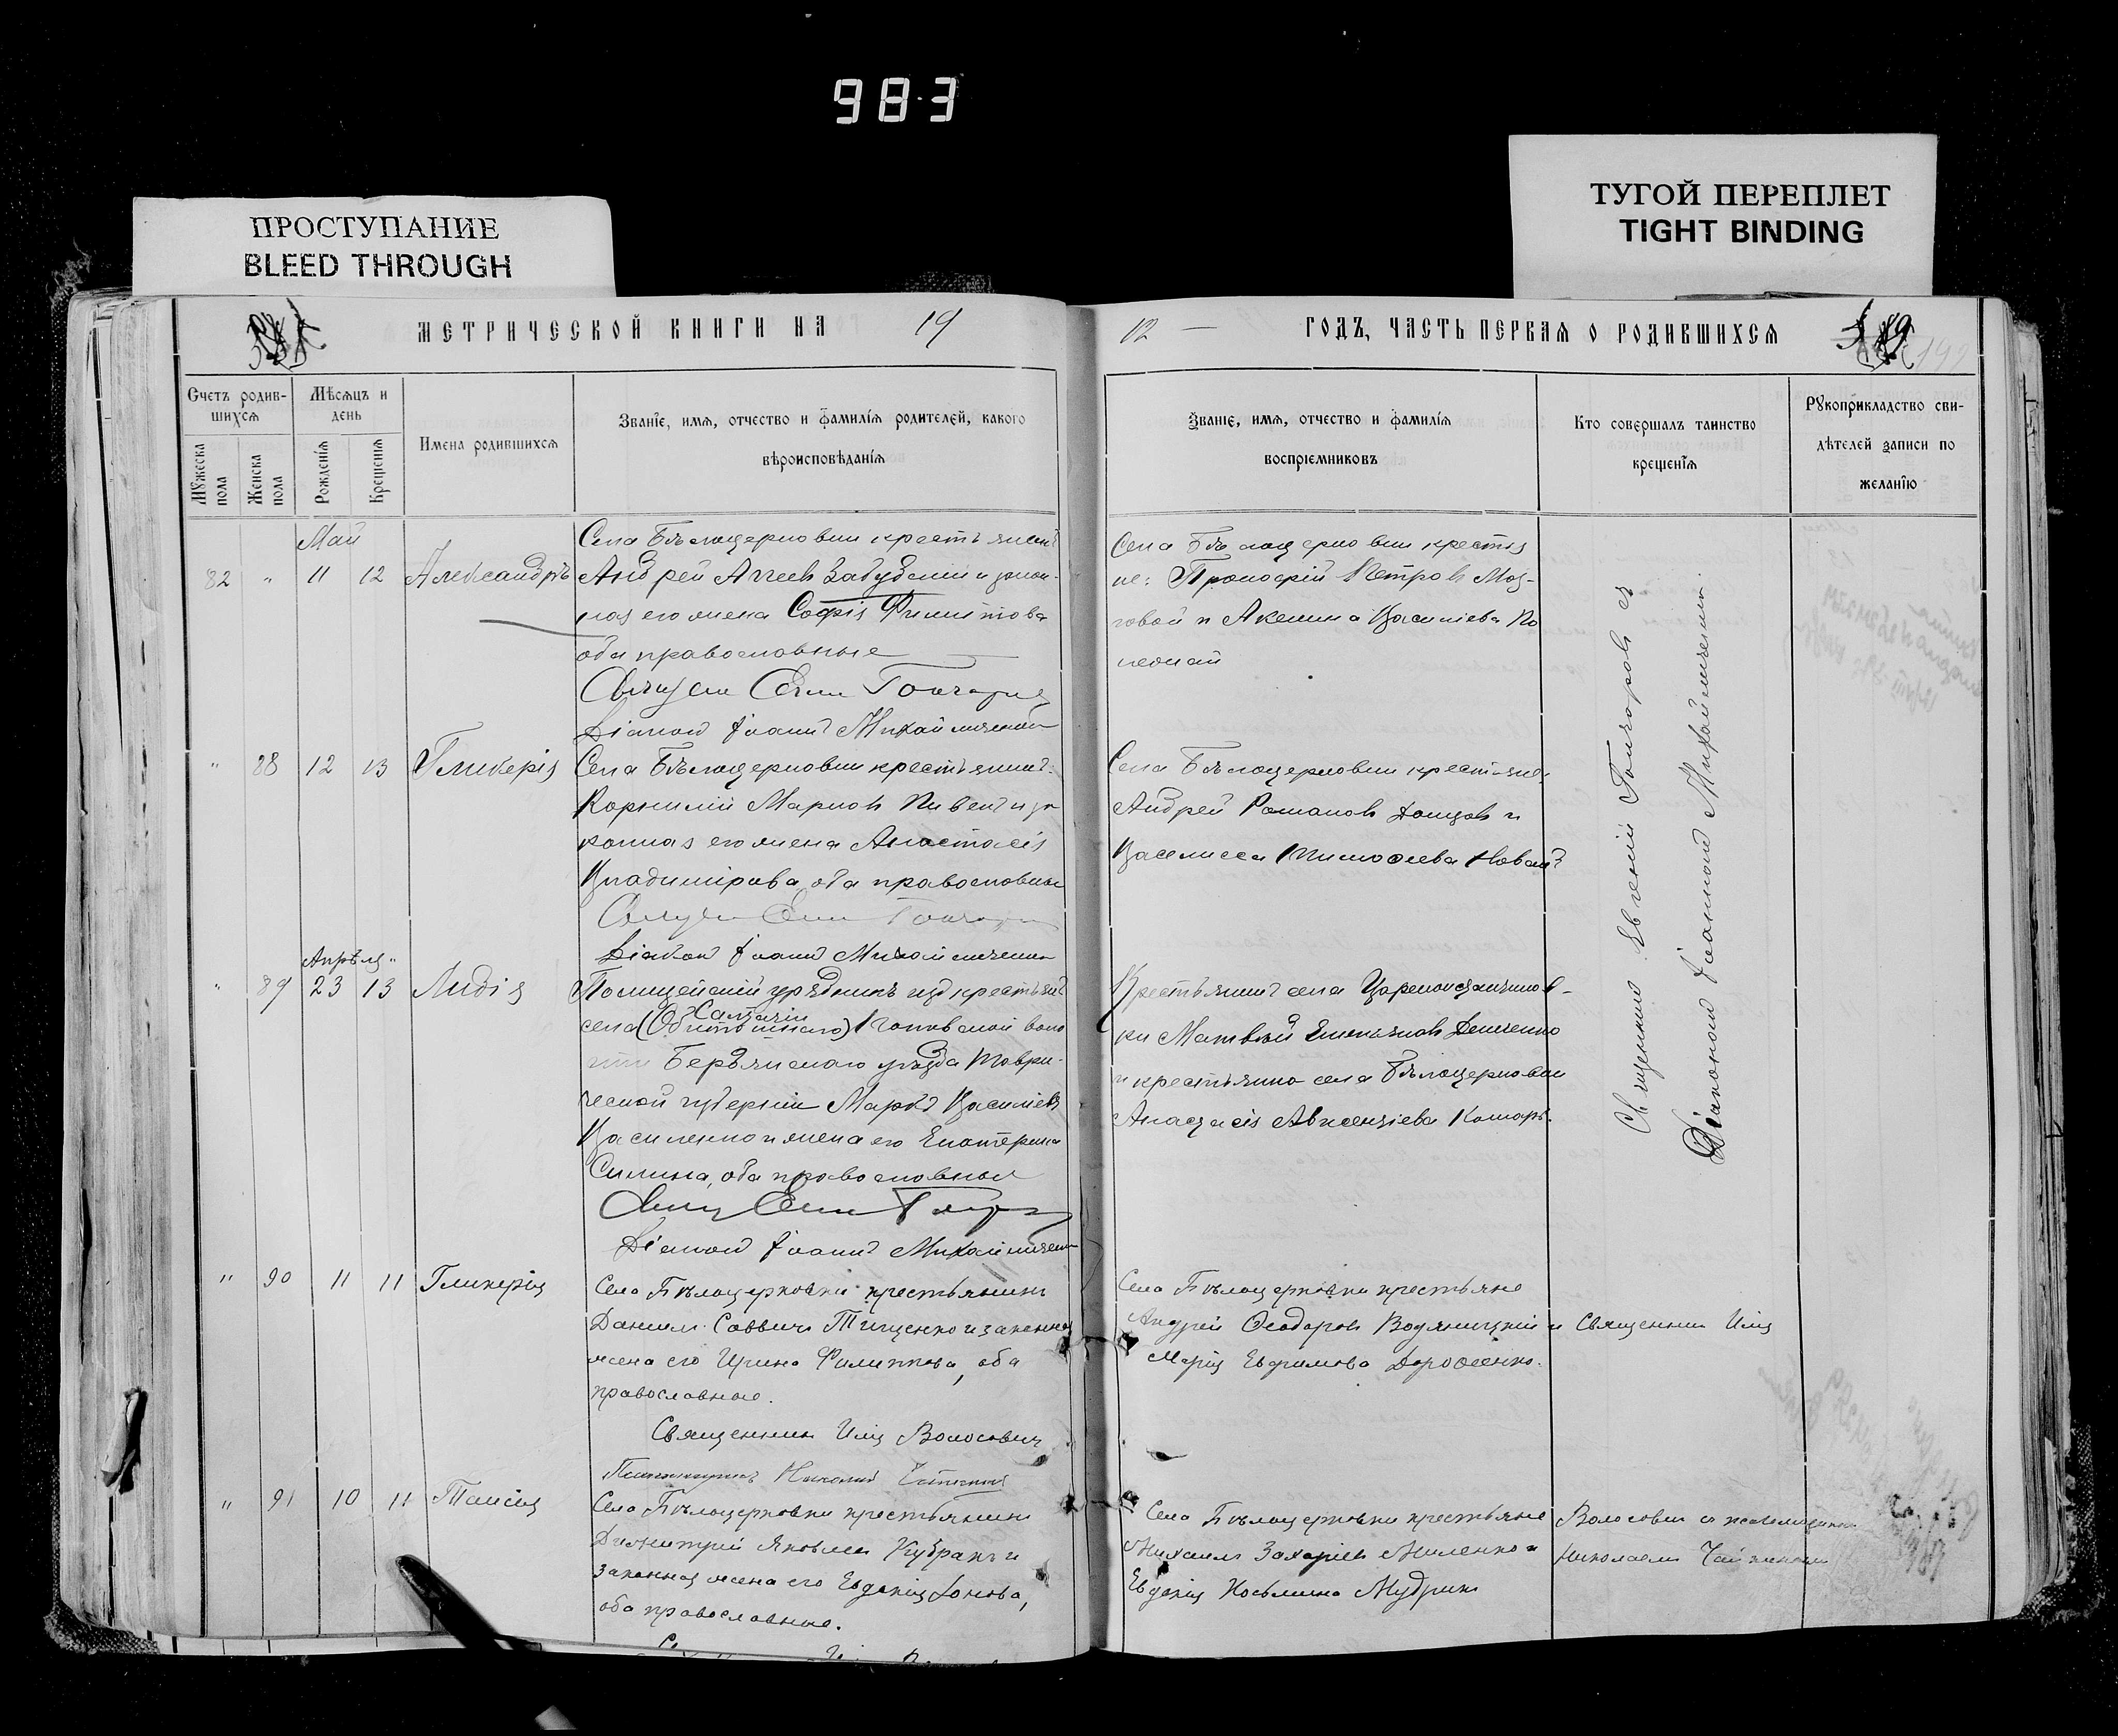 983
ПРОСТУПАНИЕ
BLEED THROUGH
ТУГОЙ ПЕРЕПЛЕТ
TIGHT BINDING
МЕТРИЧЕСКОЙ КНИГИ НА 19
12 — ГОДЪ, ЧАСТЬ ПЕРВАЯ О РОДИВШИХСЯ
Счетъ родив-
шихся
Мѣсяцъ и
день
Мужеска
пола
Женска
пола
Рожденія
Крещенія
Имена родившихся
Званіе, имя, отчество и фамилія родителей, какого
вѣроисповѣданія
Званіе, имя, отчество и фамилія
воспріемниковъ
Кто совершалъ таинство
крещенія
Рукоприкладство сви-
дѣтелей записи по
желанію
Май
82 " 11 12 Александръ
Села Бѣлоцерковки крестьянинъ
Андрей
его жена Софія Филиппова
оба православные
Діаконъ Іоаннъ Михайличенко
Села Бѣлоцерковки крестья
не: Прокофій Петровъ Моз-
говой и Акилина Васильева
" 88 12 13 Гликерія
Села Бѣлоцерковки крестьянинъ:
Корнилій Марковъ Пивень и за
конная его жена Анастасія
Владимірова, оба православные
Діаконъ Іоаннъ Михайличенко
Села Бѣлоцерковки крестьяне:
Андрей Романовъ Донцовъ и
Василисса Тимофеева
Апрѣля
" 89 23 13 Лидія
Полицейскій урядникъ изъ крестьянъ
села
Бердянскаго уѣзда Таври-
ческой губерніи Марко Васильевъ
Василенко и жена его Екатерина
Силина, оба православные
Діаконъ Іоаннъ Михайличенко
Крестьянинъ села Цареконстантинов-
ки Матвѣй Емельяновъ Демченко
и крестьянка села Бѣлоцерковки
Анастасія Авксентіева Комаръ.
Священникъ Евгеній Гончаровъ съ
Діакономъ Іоанномъ Михайличенко.
" 90 11 11 Гликерія
Села Бѣлоцерковки крестьянинъ
Даніилъ Саввичъ Тищенко и законная
жена его Ирина Филиппова, оба
православные.
Священникъ Илія Волосовичъ
Псаломщикъ Николай
Села Бѣлоцерковки крестьяне
Андрей Ѳеодоровъ Водяницкій и
Марія Евфимова Дорошенко.
Священникъ Илія
" 91 10 11 Таисія
Села Бѣлоцерковки крестьянинъ
Димитрій Яковлевъ Кубракъ и
законная жена его Евдокія Іонова,
оба православные.
Села Бѣлоцерковки крестьяне
Михаилъ Захаріевъ Миленко и
Евдокія Косьмина Мудрикъ
Волосовичъ съ псаломщикомъ
Николаемъ